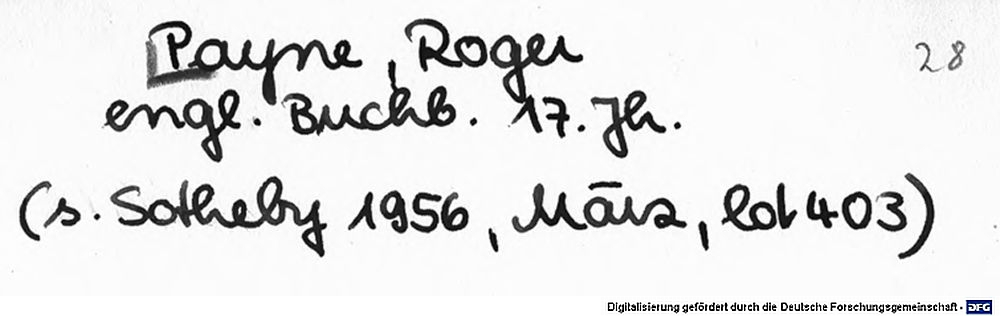 Payne, Roger
28
engl. Buchb. 17. Jh.
(s. Sotheby 1956, März, lot 403)
Digitalisierung gefördert durch die Deutsche Forschungsgemeinschaft - DFG